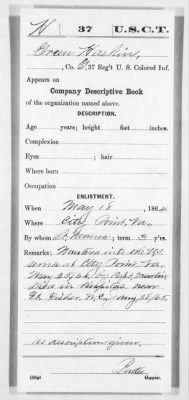 H 37 U.S.C.T.
Owen Haskins
, Co. G, 37 Reg't U. S. Colored Inf.
Appears on
Company Descriptive Book
of the organization named above.
DESCRIPTION.
Age years; height feet inches.
Complexion
Eyes ; hair
Where born
Occupation
ENLISTMENT.
When May 15, 1864.
Where City Point, Va.
By whom ; term 3 y'rs.
Remarks: Mustered into the U.S.
service at City Point Va
May 25/64, by Capt
Died in Hospital near
Ft. Fisher N.C. Aug 25/65
No description given.
Copyist.